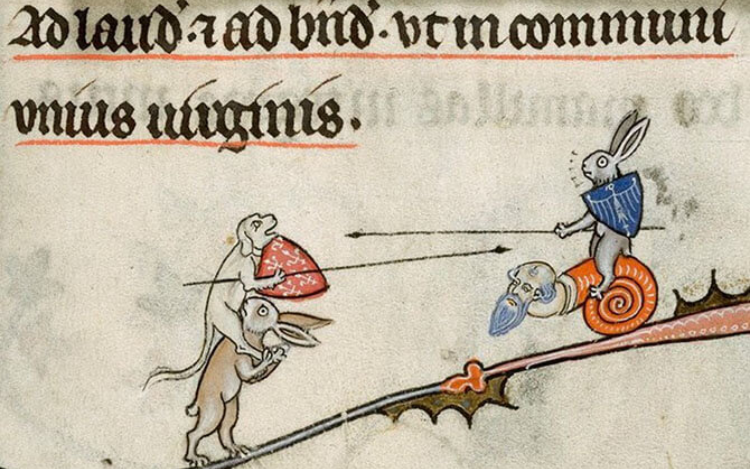 Ad laud' ⁊ ad bñd' · vt in communi
vnius uirginis .